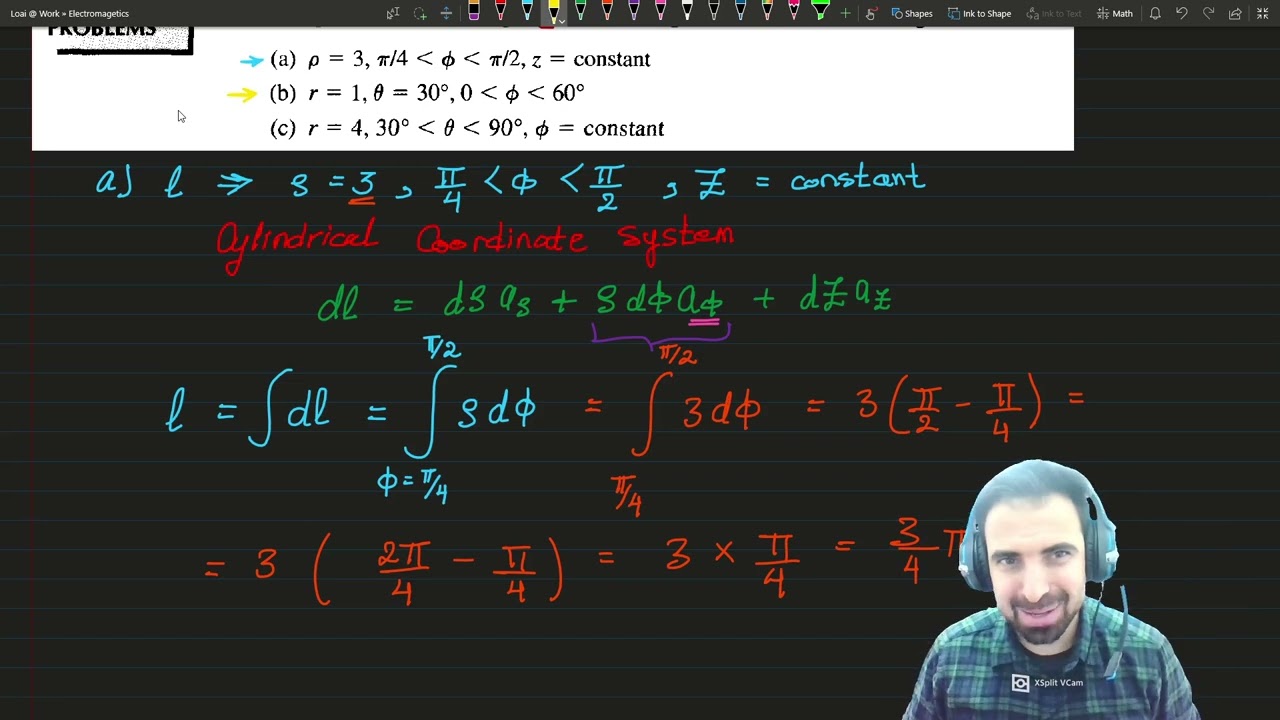 Loai @ Work » Electromagetics
Shapes Ink to Shape Ink to Text Math
PROBLEMS
(a) ρ = 3, π/4 < ϕ < π/2, z = constant
(b) r = 1, θ = 30°, 0 < ϕ < 60°
(c) r = 4, 30° < θ < 90°, ϕ = constant
a) l ⇒ ρ = 3, π/4 < ϕ < π/2, z = constant
Cylindrical Coordinate System
dl = dρ aρ + ρ dϕ aϕ + dz az
l = ∫ dl = ∫_{ϕ=π/4}^{π/2} ρ dϕ = ∫_{π/4}^{π/2} 3 dϕ = 3 (π/2 − π/4) =
= 3 (2π/4 − π/4) = 3 × π/4 = 3/4 π
XSplit VCam